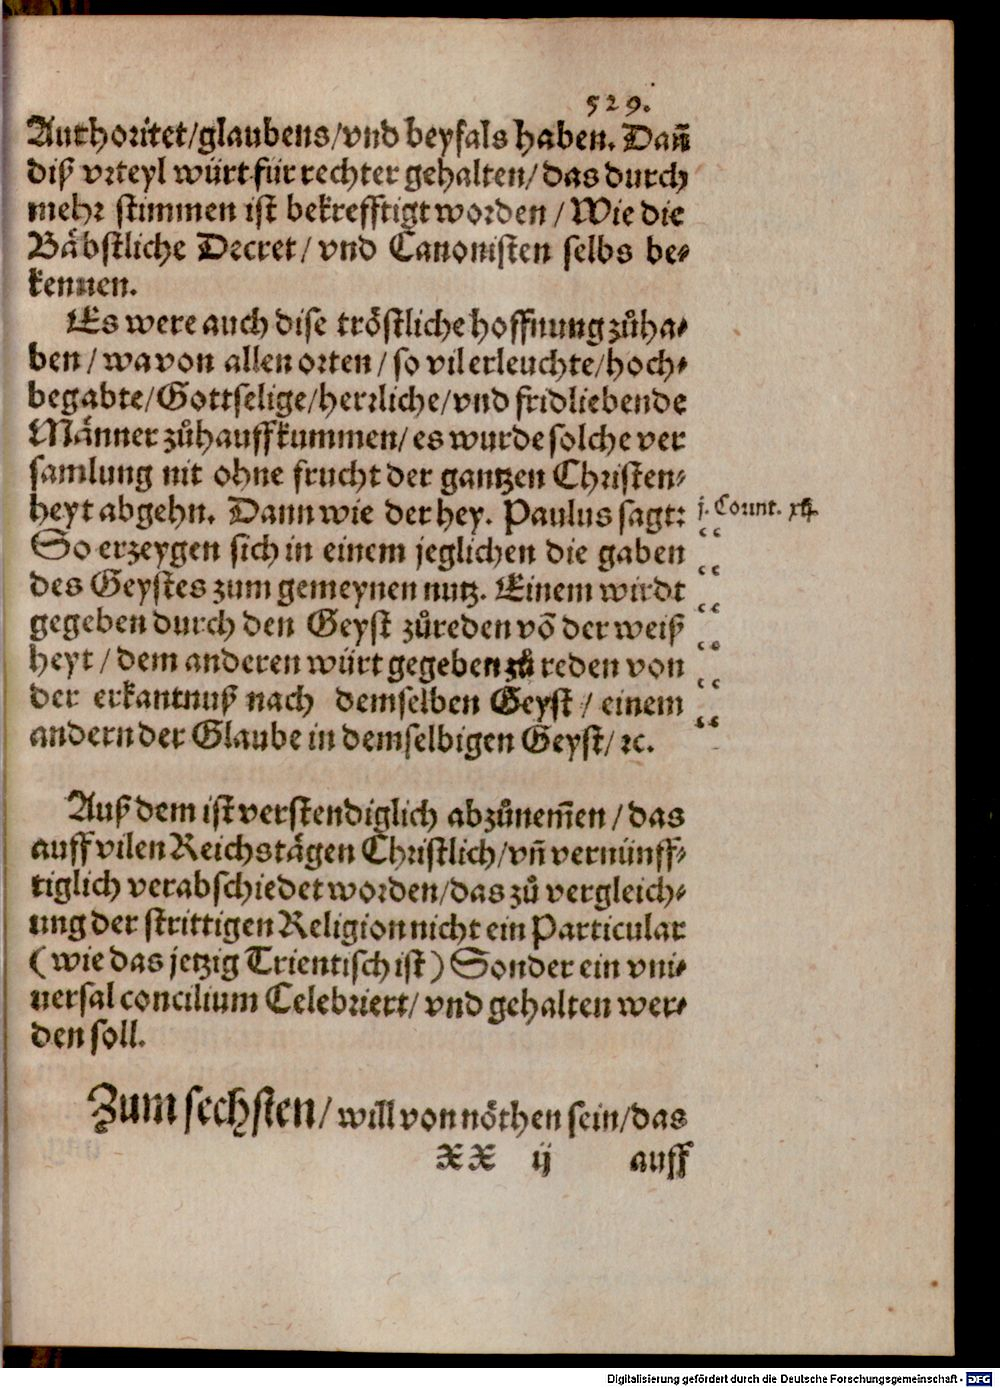 529.
Authoritet/glaubens/vnd beyfals haben. Dañ
diß vrteyl würt für rechter gehalten/das durch
mehr stimmen ist bekrefftigt worden/Wie die
Bäbstliche Decret/vnd Canonisten selbs be⸗
kennen.
Es were auch dise tröstliche hoffnung zůha⸗
ben/wa von allen orten/so vil erleuchte/hoch⸗
begabte/Gottselige/herrliche/vnd fridliebende
Männer zůhauffkummen/es wurde solche ver
samlung nit ohne frucht der gantzen Christen⸗
heyt abgehn. Dann wie der hey. Paulus sagt: j. Corint. xij.
So erzeygen sich in einem jeglichen die gaben
des Geystes zum gemeynen nutz. Einem wirdt
gegeben durch den Geyst zůreden võ der weiß
heyt/dem anderen würt gegeben zů reden von
der erkantnuß nach demselben Geyst/einem
andern der Glaube in demselbigen Geyst/ꝛc.
Auß dem ist verstendiglich abzůnem̃en/das
auff vilen Reichstägen Christlich/vñ vernünff⸗
tiglich verabschiedet worden/das zů vergleich⸗
ung der strittigen Religion nicht ein Particular
(wie das jetzig Trientisch ist) Sonder ein vni⸗
uersal concilium Celebriert/vnd gehalten wer⸗
den soll.
Zum sechsten/will von nöthen sein/das
XX ij auff
Digitalisierung gefördert durch die Deutsche Forschungsgemeinschaft - DFG